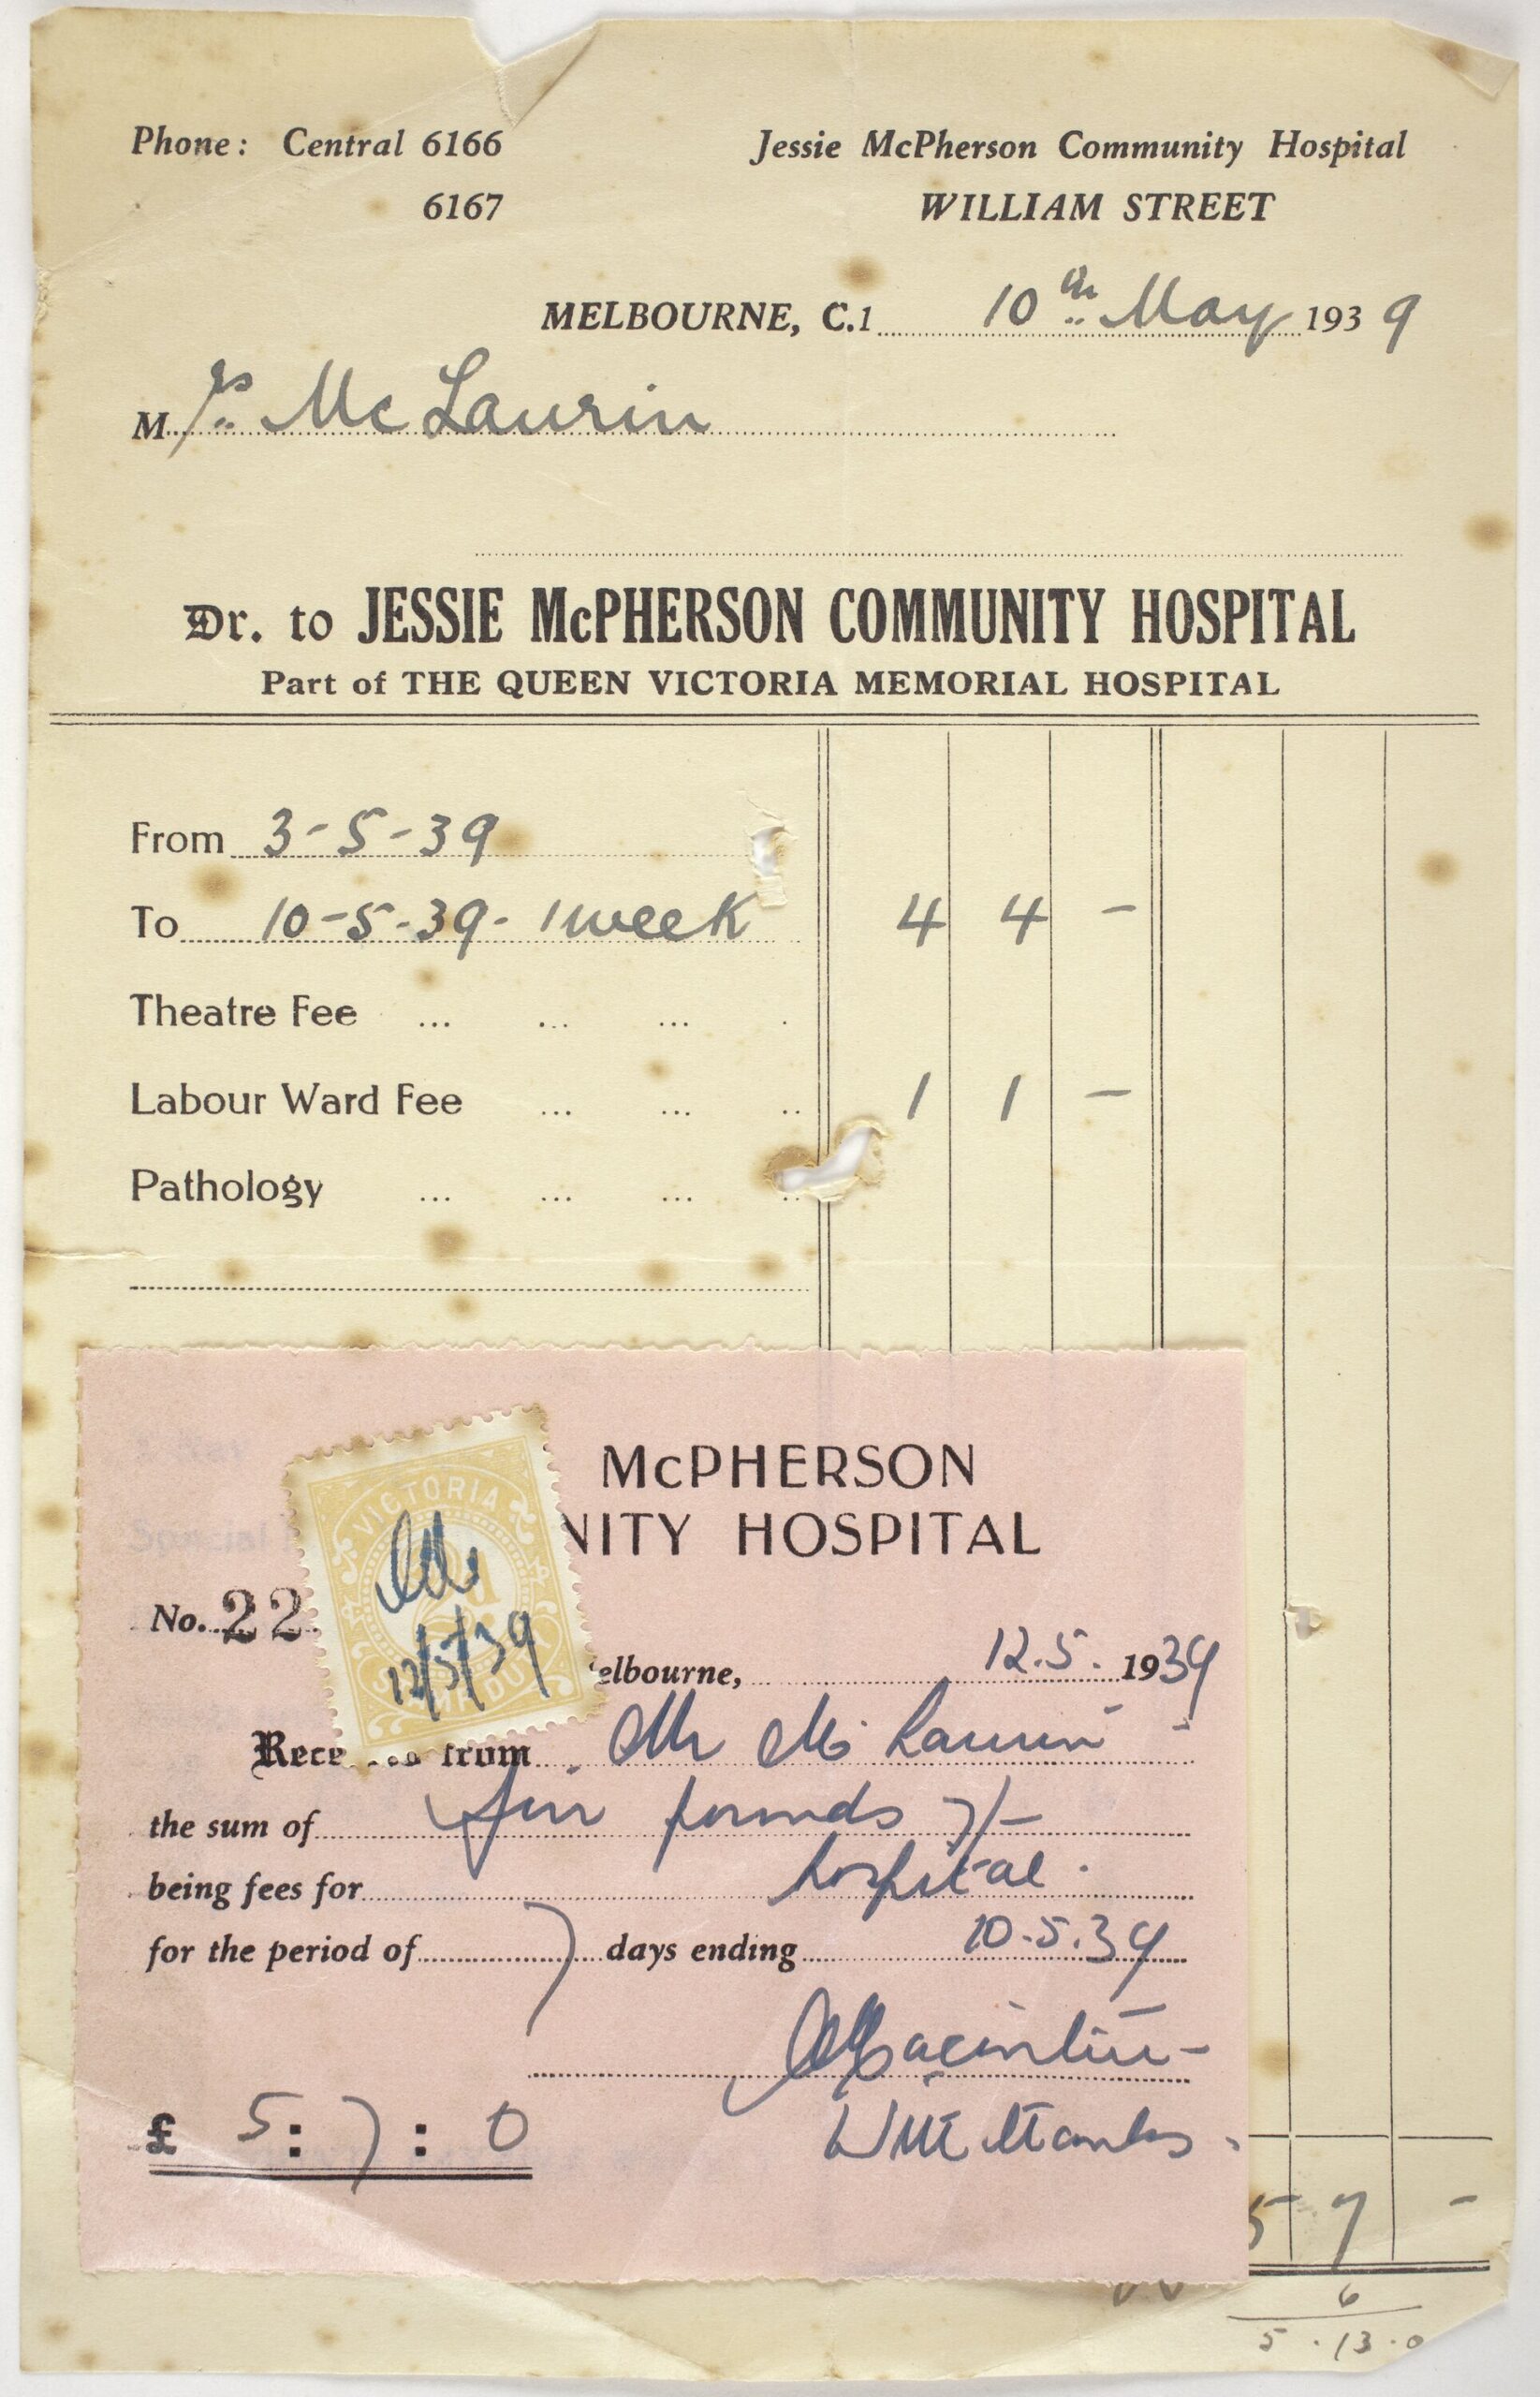 Phone: Central 6166
6167
Jessie McPherson Community Hospital
WILLIAM STREET
MELBOURNE, C.1 10th May 1939
Mrs McLaurin
Dr. to JESSIE McPHERSON COMMUNITY HOSPITAL
Part of THE QUEEN VICTORIA MEMORIAL HOSPITAL
From 3-5-39
To 10-5-39- 1 week 4 4 -
Theatre Fee ... ... ... .
Labour Ward Fee ... ... .. 1 1 -
Pathology ... ... ... ..
McPHERSON
NITY HOSPITAL
VICTORIA
12/5/39
No. 22
elbourne, 12.5. 1939
Rece from Mr McLaurin
the sum of five pounds 7/-
being fees for hospital.
for the period of 7 days ending 10.5.39
With thanks.
£ 5: 7: 0
5 7 -
6
5.13.0